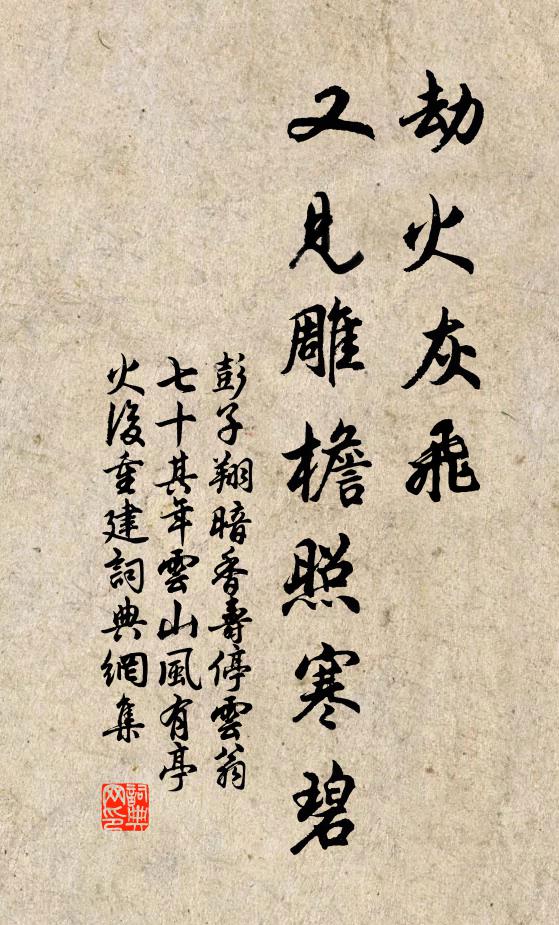 劫火灰飛
又見雕檐照寒碧
彭子翔暗香壽停雲翁
七十其年雲山風有亭
火後重建詞典網集
詞典
网印